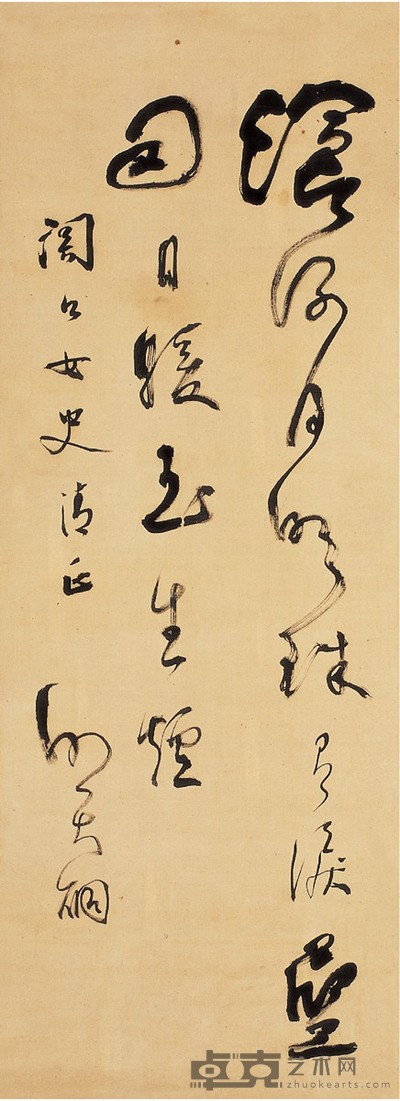 滄海月明珠有淚藍
田日暖玉生煙
女史清正
卓克艺术网
zhuokearts.com